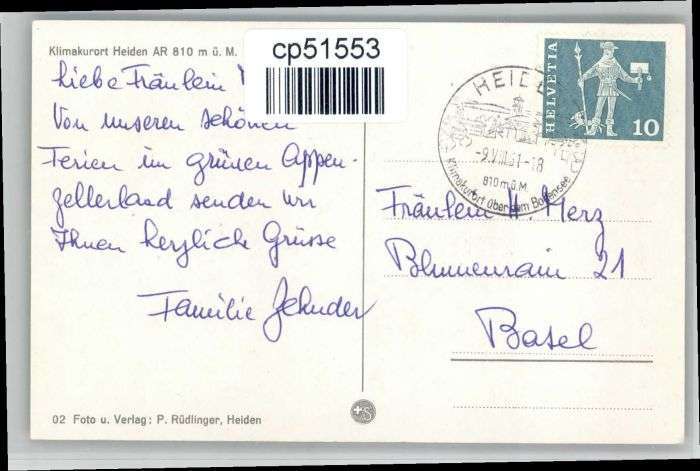 Klimakurort Heiden AR 810 m ü. M.
cp51553
Liebe Fräulein
Von unseren schönen
Ferien im grünen Appen-
zellerland senden wir
Ihnen herzlich Grüsse
Familie Zehnder
02 Foto u. Verlag: P. Rüdlinger, Heiden
HELVETIA
10
HEIDE
-9.VIII.61-18
810 m ü. M.
Klimakurort über dem Bodensee
Fräulein H. Merz
Blumenrain 21
Basel